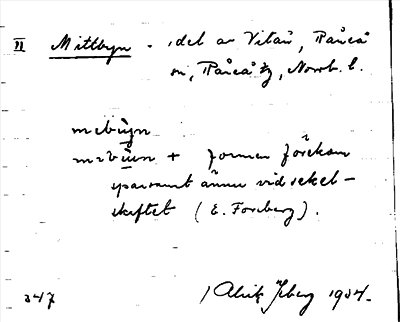 II Mittbyn - , del av Vitån, Råneå
sn, Råneå tg, Norrb. l.
mebùyn
+ formen förekom
sparsamt ännu vid sekel-
skiftet (E. Forsberg).
347 / 1934.